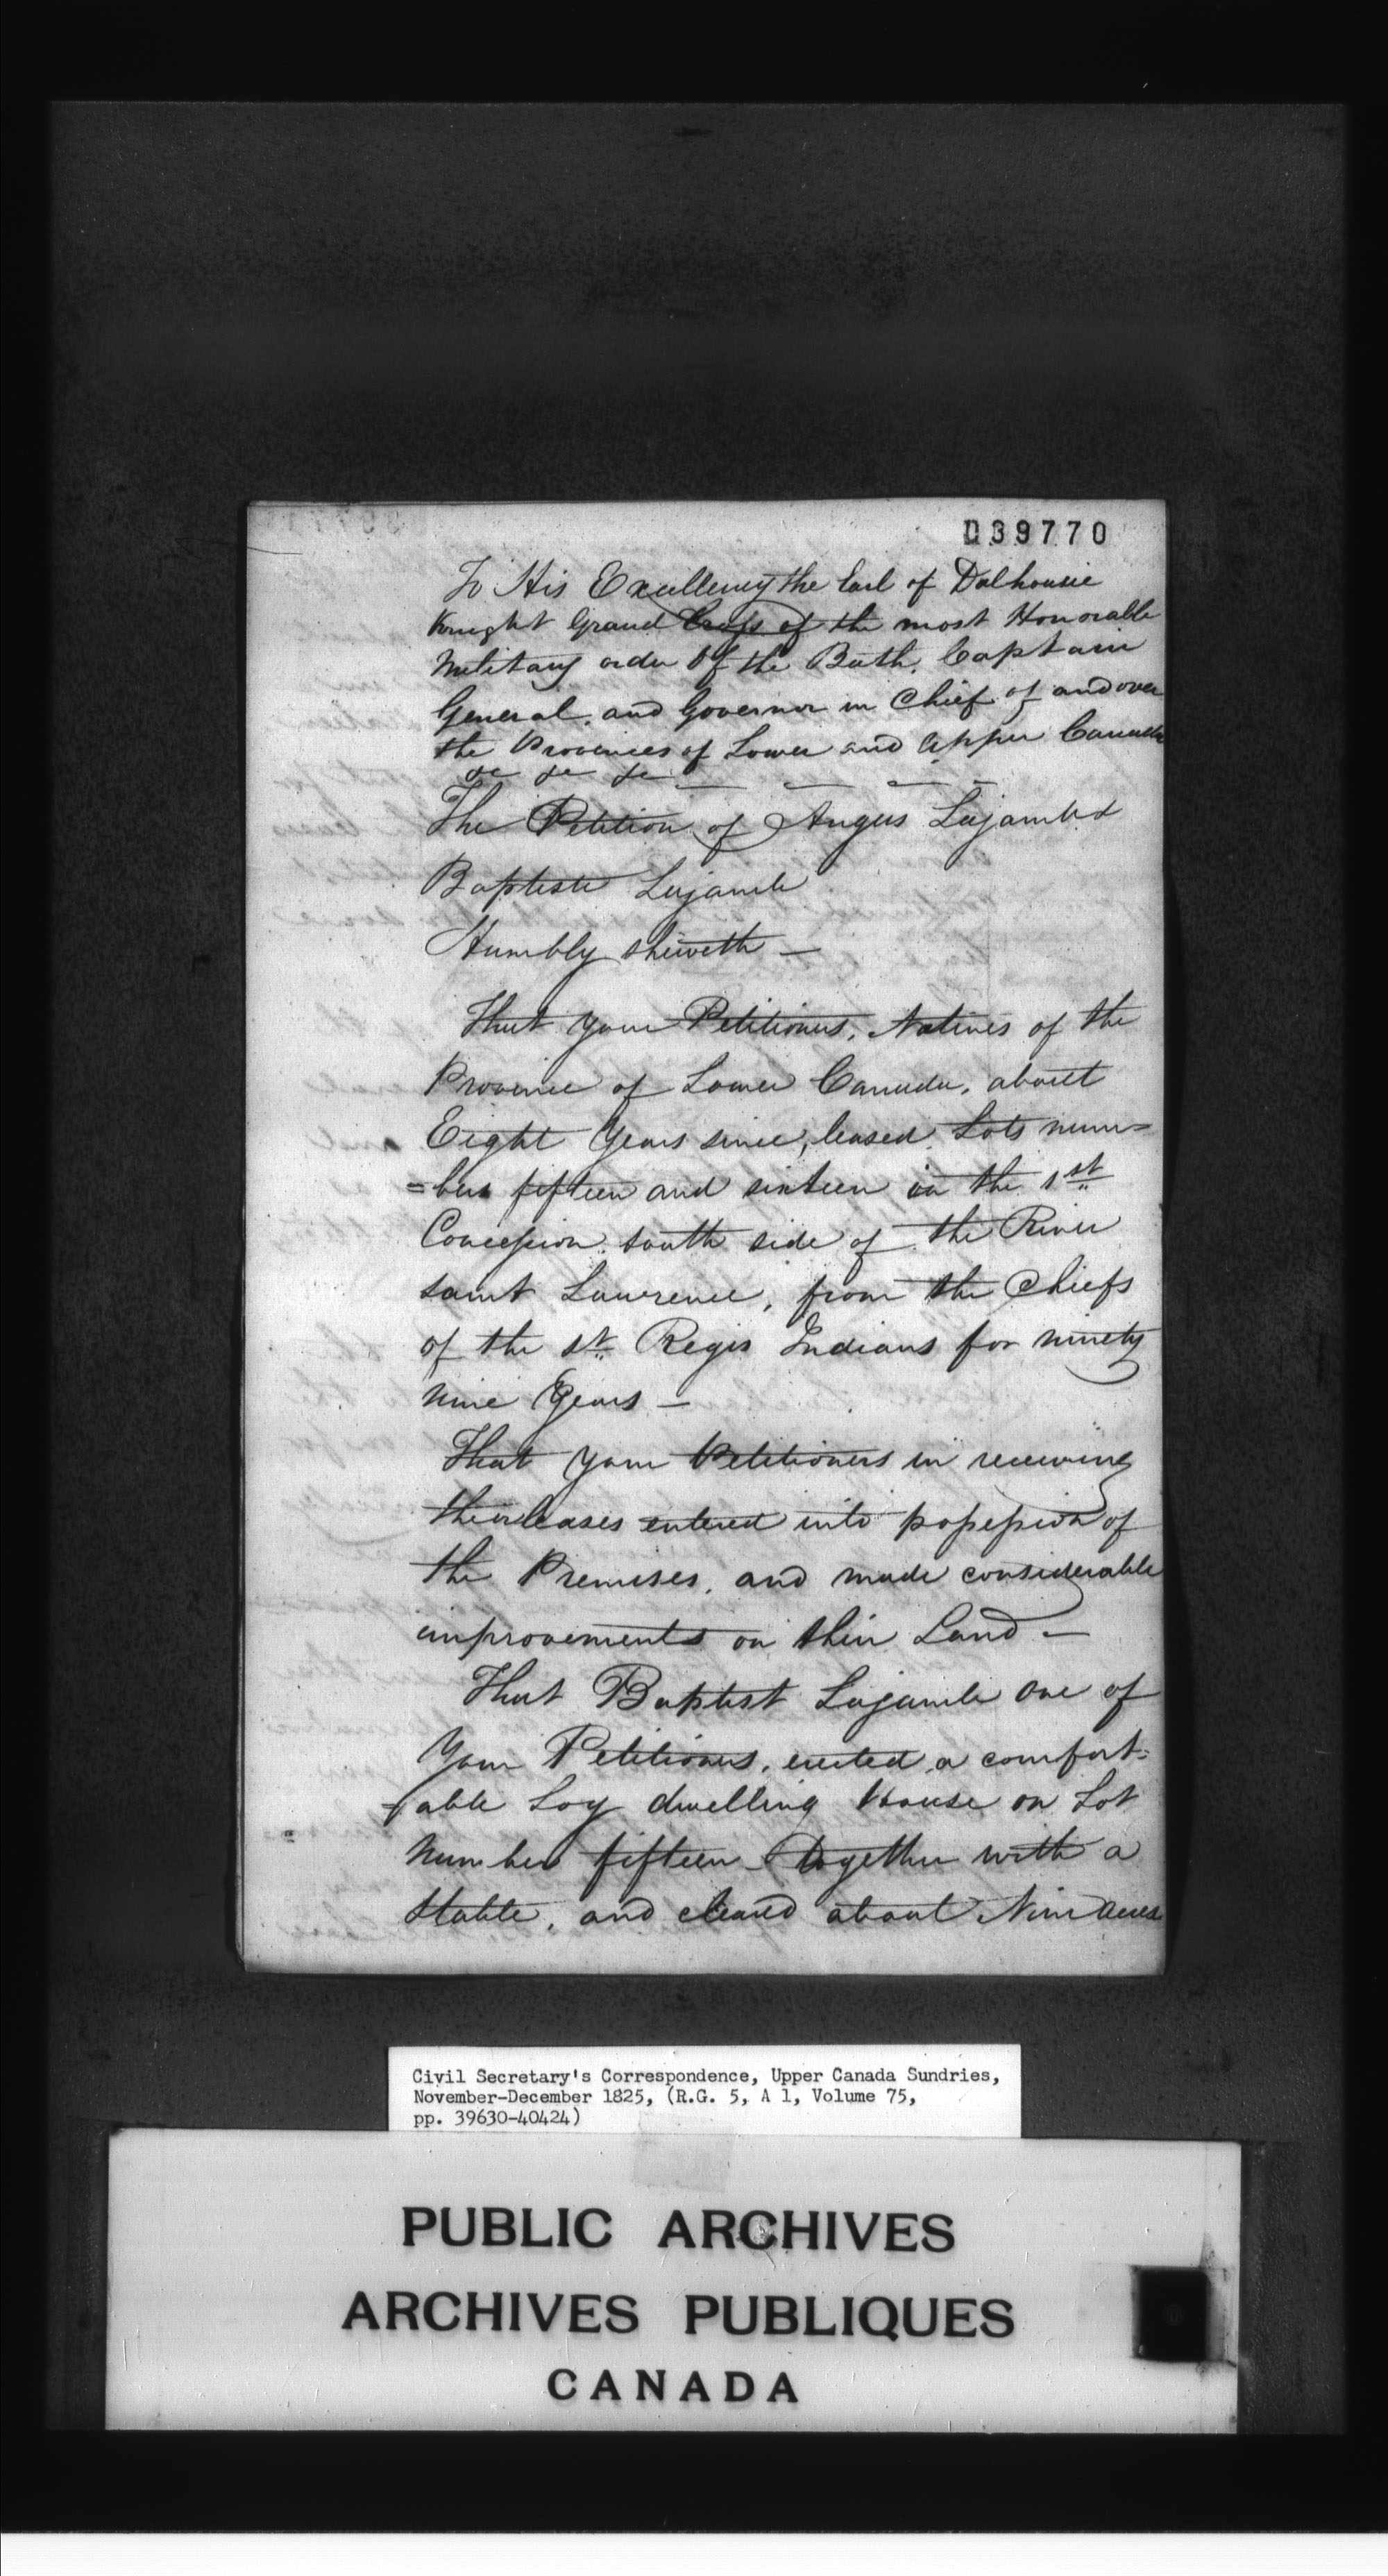 D39770
To His Excellency the Earl of Dalhousie
Knight Grand Cross of the most Honorable
Military order Of the Bath, Captain
General, and Governor in Chief of and over
the Provinces of Lower and Upper Canada
&c &c &c
The Petition of Angus Lajamb &
Baptiste Lajamb
Humbly sheweth —
That your Petitioners, Natives of the
Province of Lower Canada, about
Eight Years since, leased Lots num=
=bers fifteen and sixteen in the 1st
Concession south side of the River
saint Lawrence, from the Chiefs
of the st Regis Indians for ninety
nine Years —
That your Petitioners in receiving
their leases entered into possession of
the Premises, and made considerable
improvements on their Land —
That Baptist Lajamb one of
Your Petitioners, erected a comfort=
=able Log dwelling House on Lot
Number fifteen together with a
Stable, and cleared about Nine acres
Civil Secretary's Correspondence, Upper Canada Sundries,
November-December 1825, (R.G. 5, A 1, Volume 75,
pp. 39630-40424)
PUBLIC ARCHIVES
ARCHIVES PUBLIQUES
CANADA